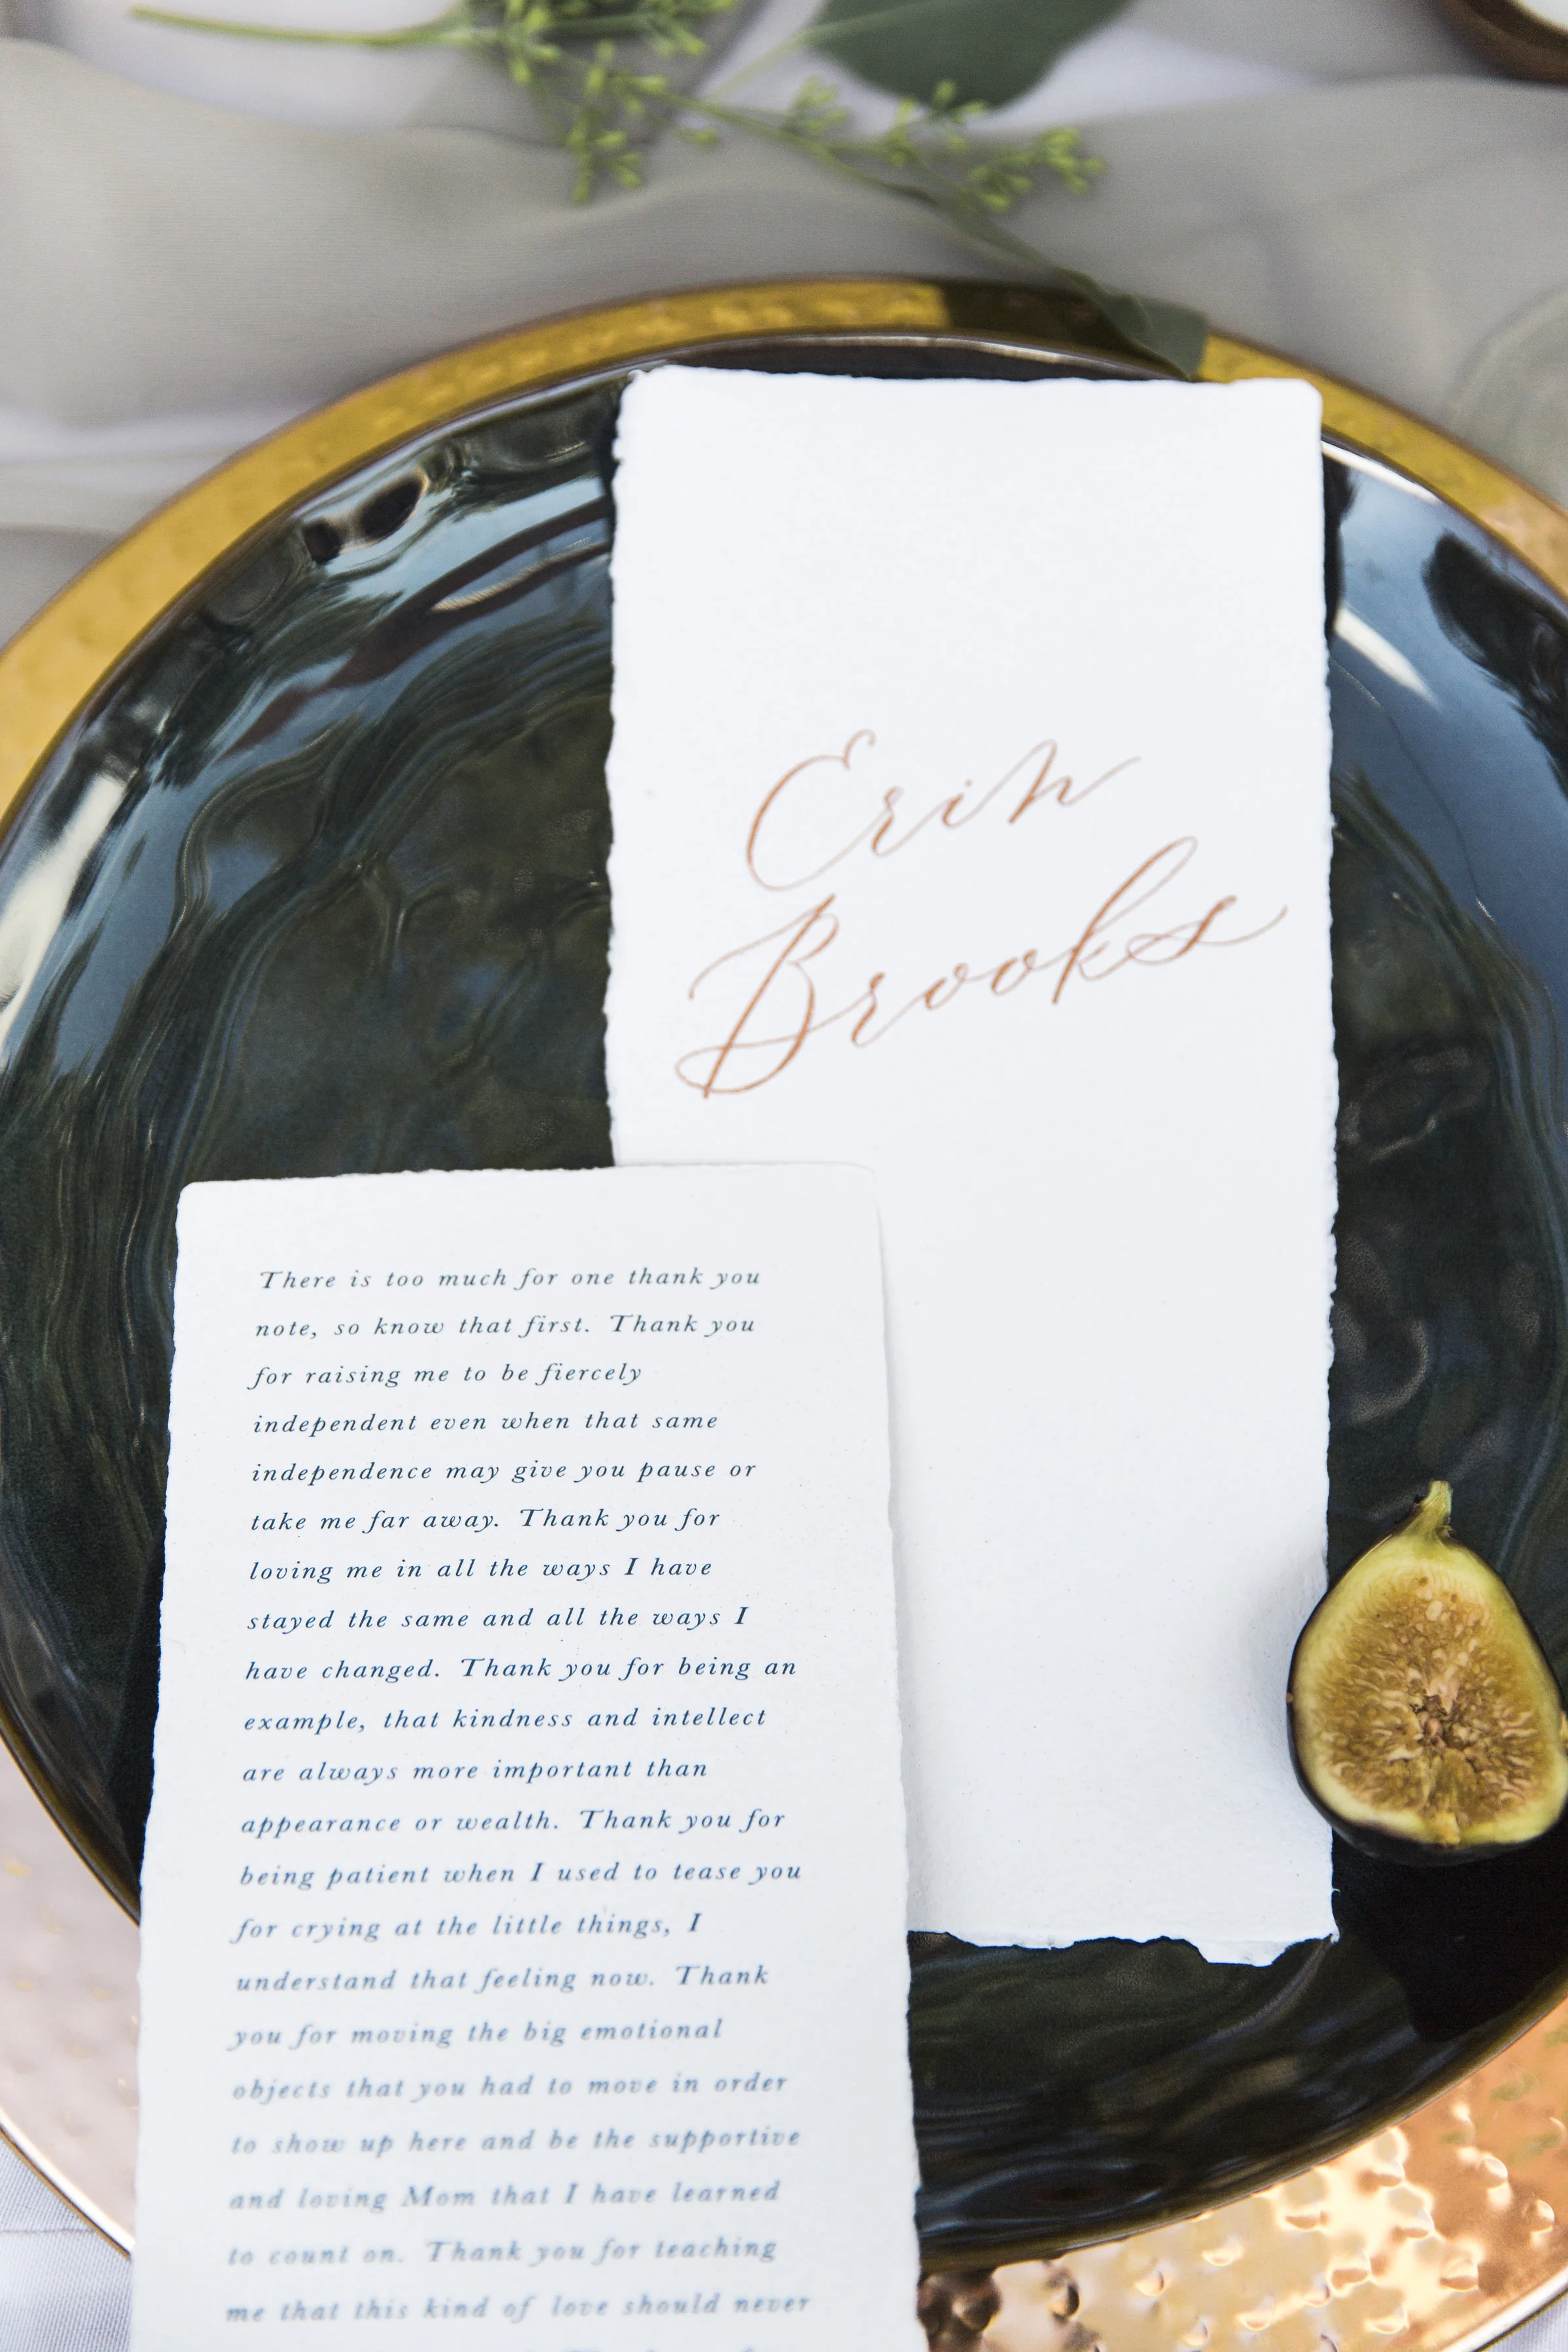 Erin
Brooks
There is too much for one thank you
note, so know that first. Thank you
for raising me to be fiercely
independent even when that same
independence may give you pause or
take me far away. Thank you for
loving me in all the ways I have
stayed the same and all the ways I
have changed. Thank you for being an
example, that kindness and intellect
are always more important than
appearance or wealth. Thank you for
being patient when I used to tease you
for crying at the little things, I
understand that feeling now. Thank
you for moving the big emotional
objects that you had to move in order
to show up here and be the supportive
and loving Mom that I have learned
to count on. Thank you for teaching
me that this kind of love should never